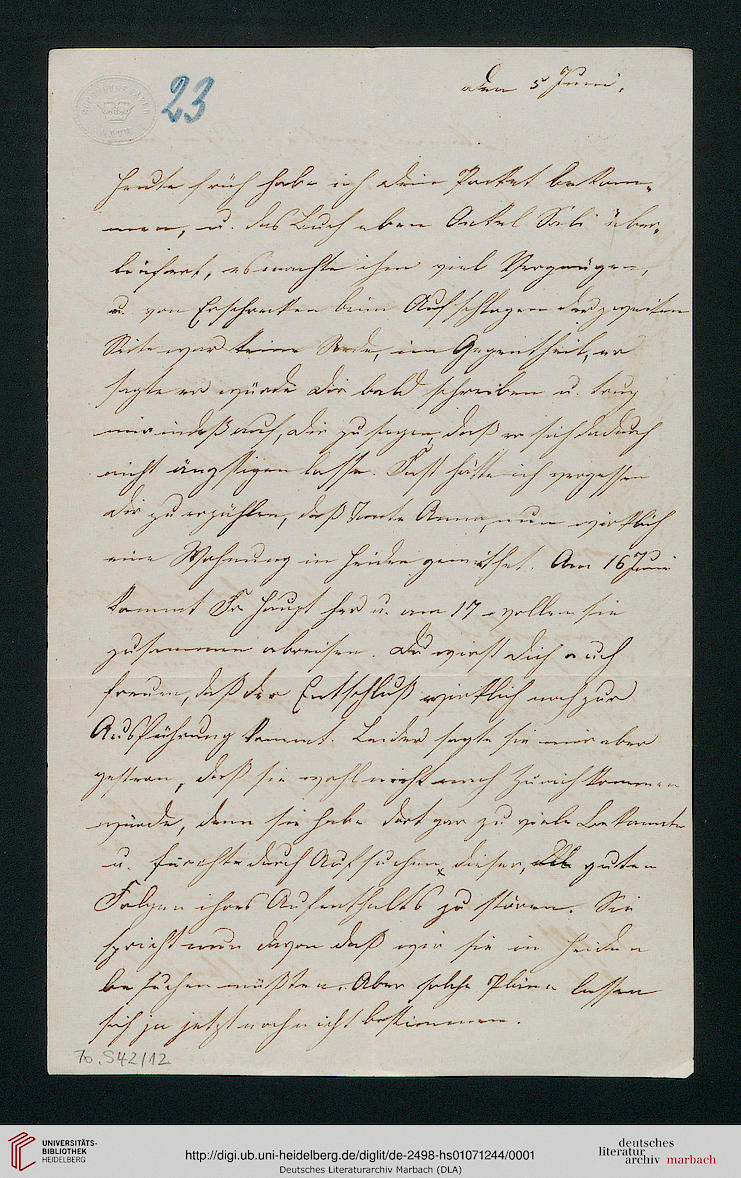 23
den 5 Juni.
Heute früh habe ich dein Packet bekom-
men, u. das Buch eben Onkel über-
liefert, es machte ihm viel Vergnügen,
u. von Erschrecken beim Aufschlagen der zweiten
Seite war keine Rede, im Gegentheil, er
sagte er würde dir bald schreiben u. trug
mir indeß auf, dir zu sagen, daß er sich dadurch
nicht ängstigen lasse. Fast hätte ich vergessen
dir zu erzählen, daß Tante Anna, nun wirklich
eine Wohnung in Heiden gemiethet. Am 16 Juni
kommt Fr Haupt her u. am 17 wollen sie
zusammen abreisen. Du wirst dich auch
freuen, daß der Entschluß wirklich noch zur
Ausführung kommt. Leider sagte sie mir aber
gestern, daß sie wohl nicht nach Zürich kommen
würde, denn sie habe dort gar zu viele Bekannte
u. fürchte durch Aufsuchen dieser, die guten
Folgen ihres Aufenthalts zu stören. Sie
spricht nun davon daß wir sie in Heiden
besuchen müßten. Aber solche Pläne lassen
sich ja jetzt noch nicht bestimmen.
70.542/12
UNIVERSITÄTS-
BIBLIOTHEK
HEIDELBERG
http://digi.ub.uni-heidelberg.de/diglit/de-2498-hs01071244/0001
Deutsches Literaturarchiv Marbach (DLA)
deutsches
literatur
archiv marbach